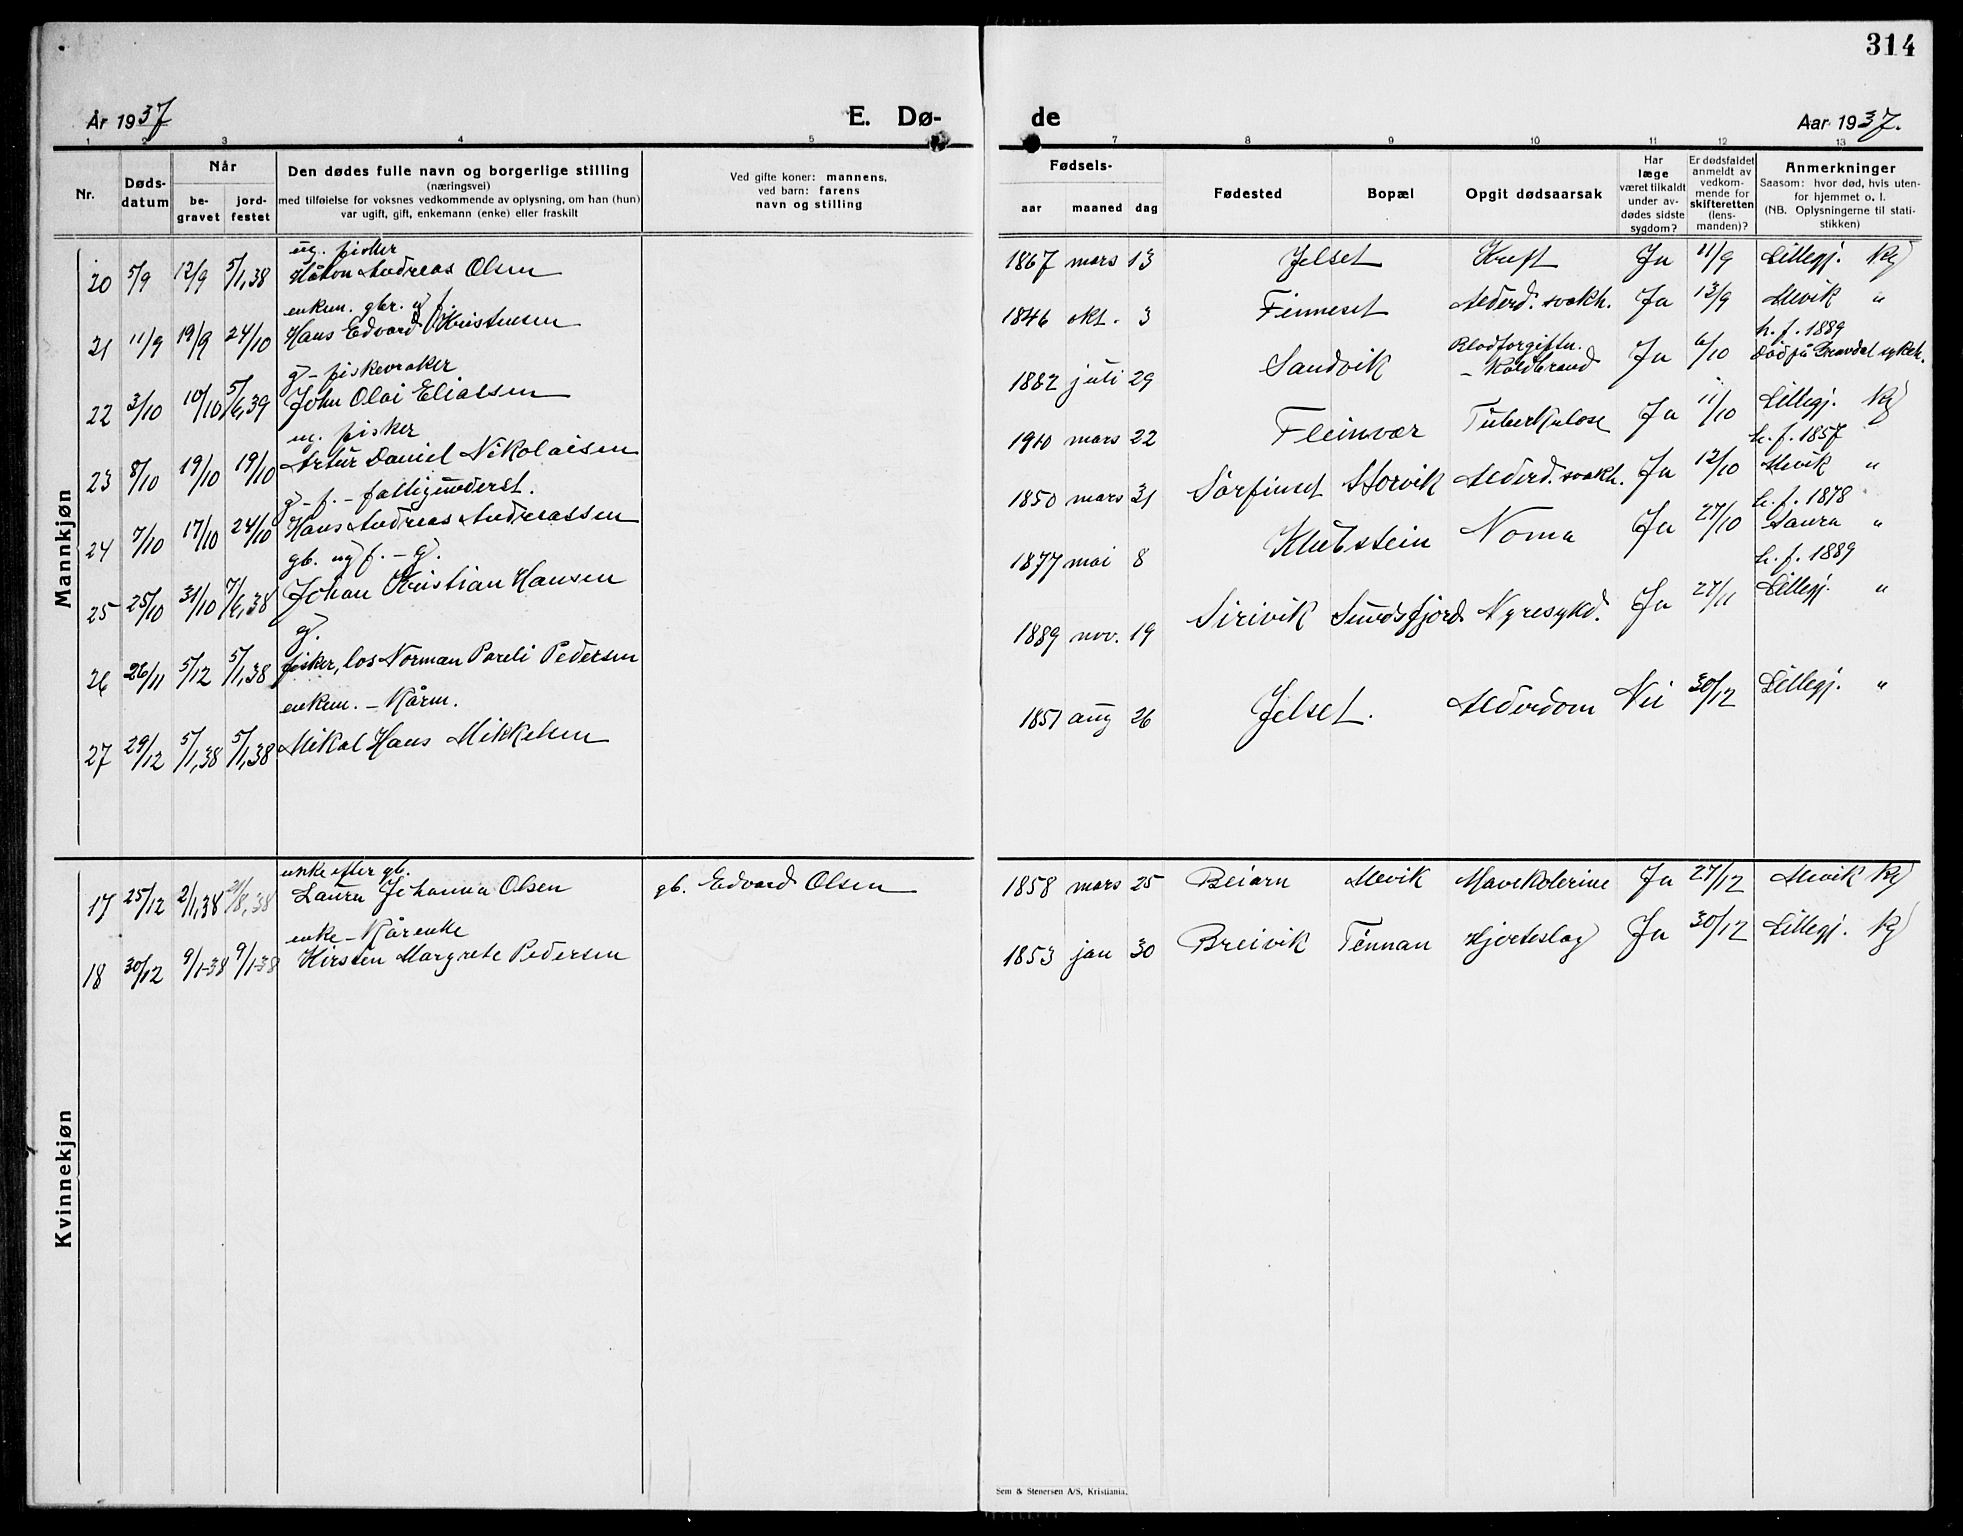 314
År 1937
E. Dø-
de
Aar 1937.
1 2 3 4 5 7 8 9 10 11 12 13
Nr.
Døds-
datum
Når
be-
gravet
jord-
festet
Den dødes fulle navn og borgerlige stilling
(næringsvei)
med tilføielse for voksnes vedkommende av oplysning, om han (hun)
var ugift, gift, enkemann (enke) eller fraskilt
Ved gifte koner: mannens,
ved barn: farens
navn og stilling
Fødsels-
aar maaned dag
Fødested
Bopæl
Opgit dødsaarsak
Har
læge
været tilkaldt
under av-
dødes sidste
sygdom?
Er dødsfaldet
anmeldt av
vedkom-
mende for
skifteretten
(lens-
manden)?
Anmerkninger
Saasom: hvor død, hvis uten-
for hjemmet o. l.
(NB. Oplysningerne til stati-
stikken)
Mannkjøn
ug. fisker
20 5/9 12/9 5/1,38 Håkon Andreas Olsen 1867 mars 13 Jelset Kreft Ja 11/9 Lillegj. Kg
enkem. gbr. og f.
21 11/9 19/9 24/10 Hans Edvard Kristensen 1846 okt. 3 Finneset Alderd. svakh. Ja 13/9 Mevik "
h. f. 1889
g - fiskevraker
22 3/10 10/10 5/6,39 John Olai Eliassen 1882 juli 29 Sandvik Blodforgiftn. - Koldbrand Ja 6/10 Død på Gravdal sykeh.
ug. fisker
23 8/10 19/10 19/10 Artur Daniel Nikolaisen 1910 mars 22 Fleinvær Tuberkulose Ja 11/10 Lillegj. Kg
h. f. 1857
g - f. - fattigunderst.
24 7/10 17/10 24/10 Hans Andreas Andreassen 1850 mars 31 Sørfinset Storvik Alderd. svakh. Ja 12/10 Mevik "
h. f. 1878
gb. og f. - g.
25 25/10 31/10 7/6,38 Johan Kristian Hansen 1877 mai 8 Klubstein Noma Ja 27/10 Saura "
h. f. 1889
g.
26 26/11 5/12 5/1,38 fisker, los Norman Pareli Pedersen 1889 nov. 19 Sirivik Sundsfjord Nyresykd. Ja 27/11 Lillegj. "
enkem. - Kårm.
27 29/12 5/1,38 5/1,38 Mikal Hans Mikkelsen 1851 aug 26 Jelset. Alderdom Nei 30/12 Lillegj. "
Kvinnekjøn
enke efter gb.
17 25/12 2/1,38 21/8,38 Laura Johanna Olsen gb. Edvard Olsen 1858 mars 25 Beiarn Mevik Mavekolerine Ja 27/12 Mevik Kg
enke - Kårenke
18 30/12 9/1-38 9/1-38 Kirsten Margrete Pedersen 1853 jan 30 Breivik Tennan Hjerteslag Ja 30/12 Lillegj. Kg
Sem & Stenersen A/S, Kristiania.